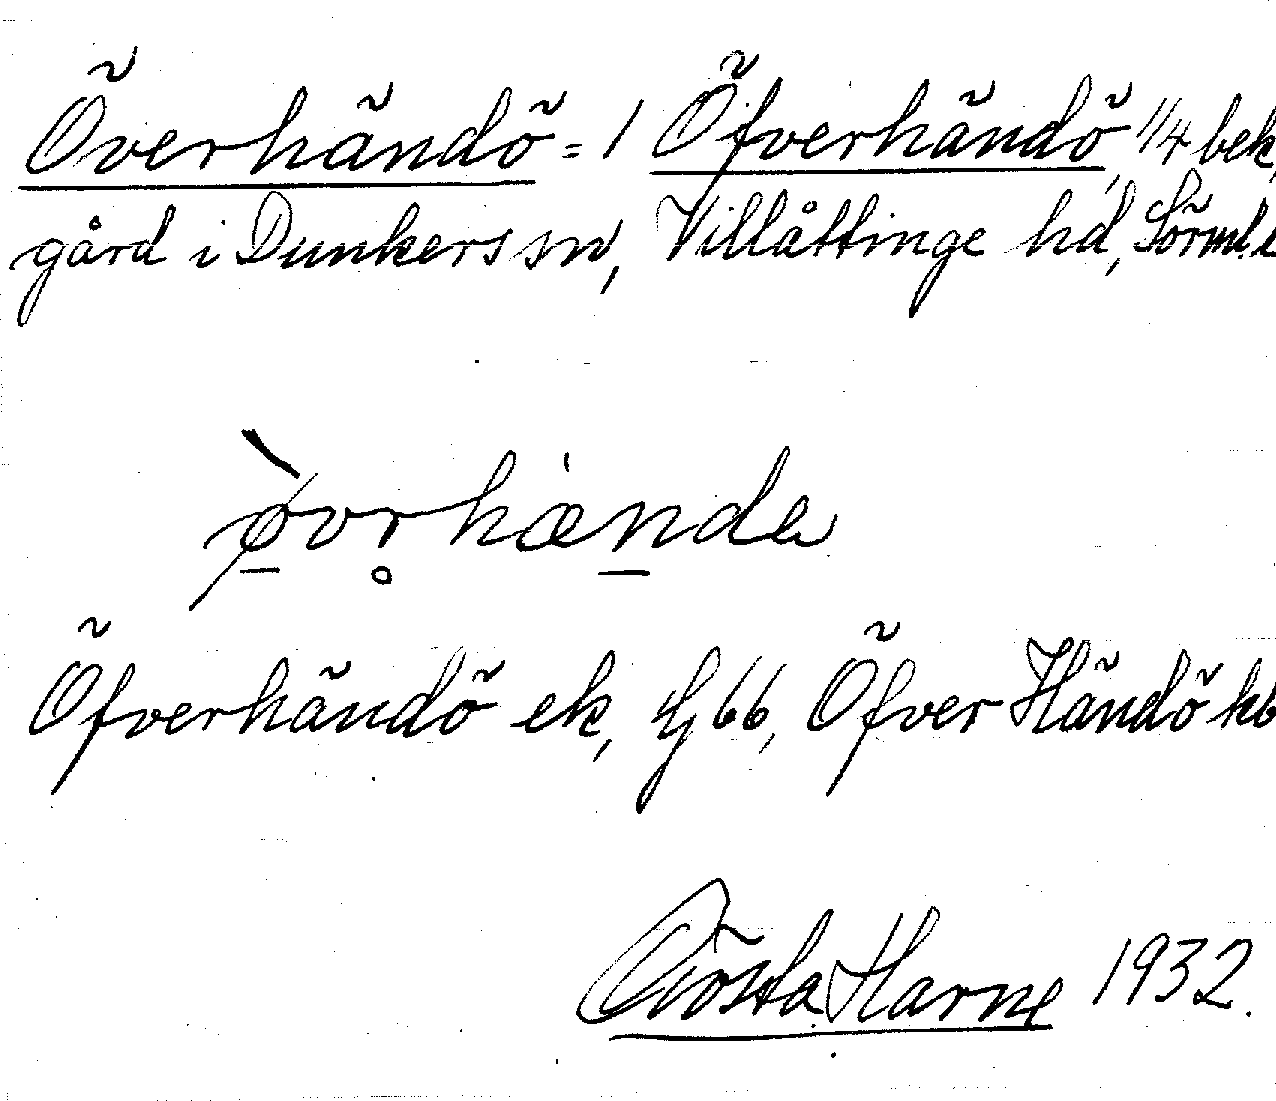 Överhändö = 1 Öfverhändö, 1/4 bek,
gård i Dunkers sn, Villåttinge hd, Sörml. l
øvr̥hænde
Öfverhändö ek, Öfver Händö kb
Gösta Harne 1932.